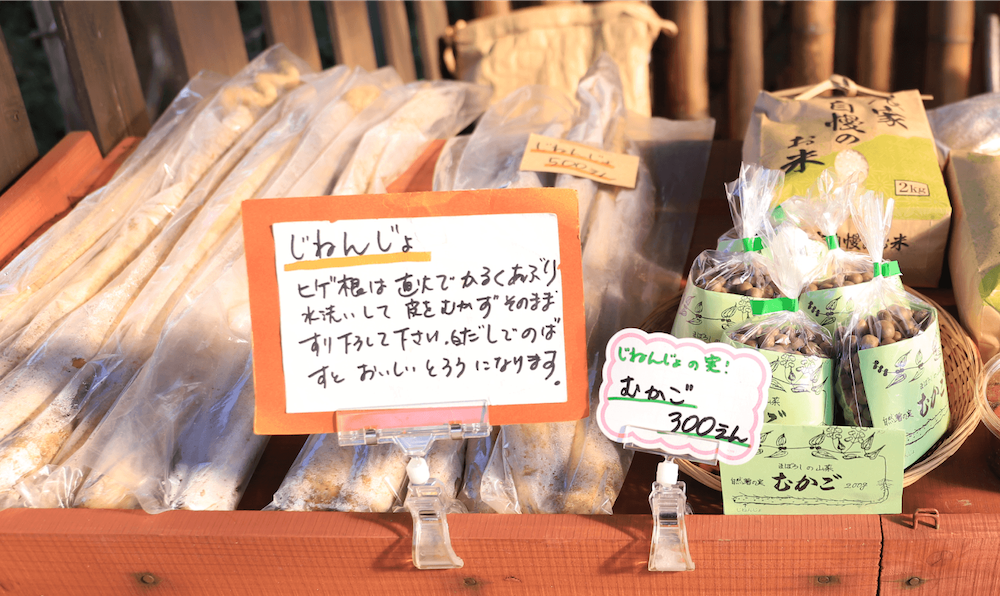 じねんじょ
500えん
じねんじょ
ヒゲ根は直火でかるくあぶり
水洗いして皮をむかずそのまま
すり下ろして下さい。白だしでのば
すとおいしいとろろになります。
じねんじょの実!
むかご
300えん
家
自慢の
お米
2kg
むかご
まぼろしの山菜
自然薯の実 むかご 200g